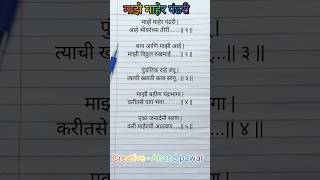 माझे माहेर पंढरी
माझे माहेर पंढरी |
आहे भीवरेच्या तीरी......|| १ ||
बाप आणि माझी आई |
माझी विठ्ठल रखमाई.....|| २ ||
पुंडलिक राहे बंधू |
त्याची ख्याती काय सांगू...|| ३ ||
माझी बहीण चंद्रभागा |
करीतसे पाप भंगा.......|| ४ ||
एका जनार्दनी शरण |
करी माहेरची आठवण....|| ५ ||
Creative - Anand pawar